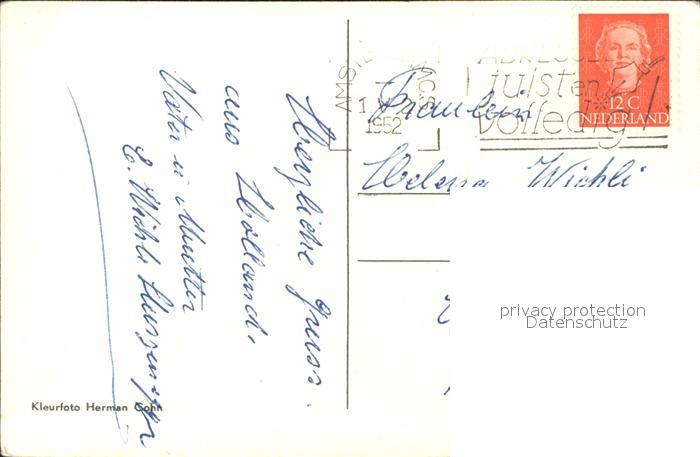 Herzliche Gruss.
aus Holland.
Vater u Mutter
E. Wichli
Kleurfoto Herman Cohn
AMS
1952
ADRESSEER
juist en
volledig
12 C
NEDERLAND
Fräulein
Helena Wichli
privacy protection
Datenschutz